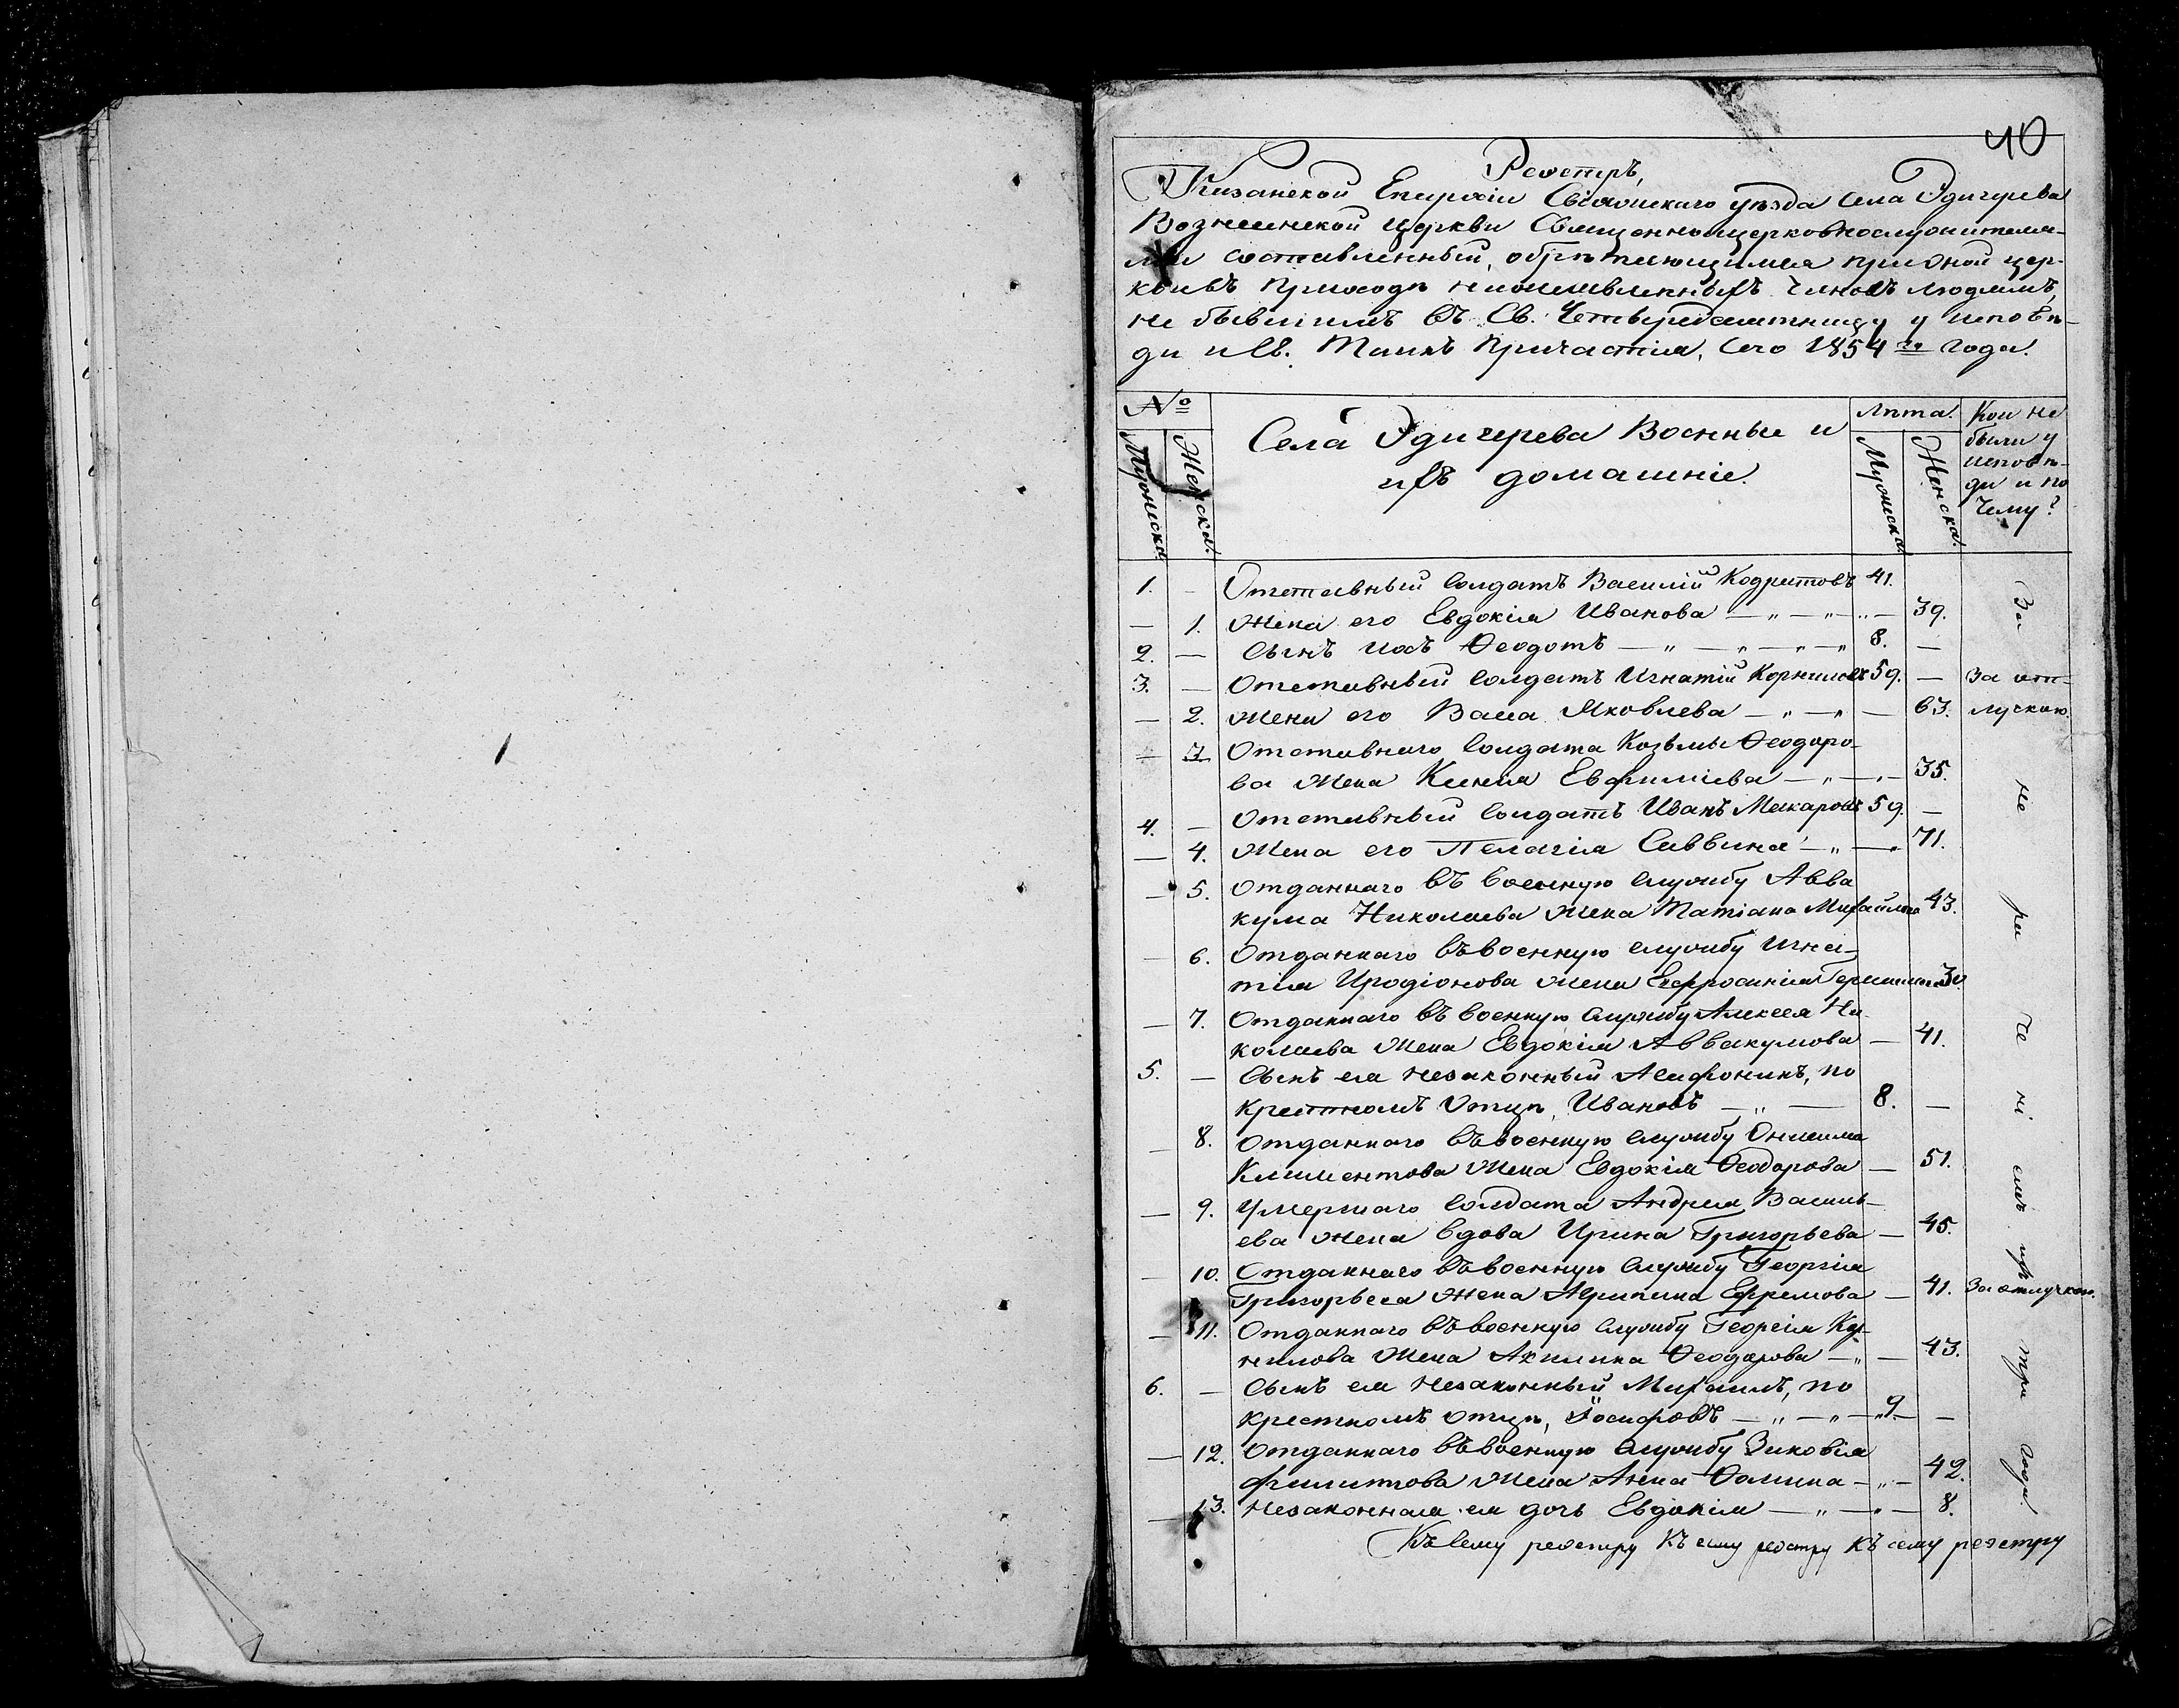 40
Реестръ,
Казанской Епархіи Свіяжскаго уѣзда села Эдигерева
Вознесенской церкви Священноцерковнослужителя-
ми составленный, обрѣтающимся при оной цер-
кви въ приходѣ нижеявленныхъ чиновъ людямъ,
не бывшимъ въ Св. Четыредесятницу у исповѣ-
ди и Св. Таинъ Причастія, сего 1854 го года.
№
Мужеска.
Женска.
Села Эдигерева Военные и
ихъ домашніе.
Лѣта.
Мужеска.
Женска.
Кои не
были у
исповѣ-
ди и по
чему?
1. — Отставный солдатъ Василій Кодратовъ 41.
— 1. Жена его Евдокія Иванова — „ — „ — „ — 39.
2. — Сынъ ихъ Ѳеодотъ — „ — „ — „ — „ 8. —
3. — Отставный солдатъ Игнатій Корниловъ 59. — За от-
— 2. Жена его Васса Яковлева — „ — „ — 63. лучкою.
— 3. Отставнаго солдата Козьмы Ѳеодоро-
ва жена Ксенія Евфиміева — „ — „ — 35.
4. — Отставный солдатъ Иванъ Макаровъ 59. —
— 4. Жена его Пелагія Саввина — „ — „ 71.
— 5. Отданнаго въ военную службу Авва
кума Николаева жена Татіана Михайлова 43.
— 6. Отданнаго въ военную службу Игна-
тія Иродіонова жена Евфросинія 30.
— 7. Отданнаго въ военную службу Алексея Ни-
колаева жена Евдокія Аввакумова — 41.
5. — Сынъ ея незаконный Агафоникъ, по
крестномъ отцѣ, Ивановъ — „ — 8. —
— 8. Отданнаго въ военную службу Онисима
Климентова жена Евдокія Ѳеодорова — 51.
— 9. Умершаго солдата Андрея Василь-
ева жена вдова Ирина Григорьева — 45.
— 10. Отданнаго въ военную службу Георгія
Григорьева жена Агрипина Ефремова — 41. За отлучкою.
— 11. Отданнаго въ военную службу Георгія Кор-
нилова жена Акилина Ѳеодорова — „ — 43.
6. — Сынъ ея незаконный Михаилъ, по
крестномъ отцѣ, Іосифовъ — „ — „ — 9. —
— 12. Отданнаго въ военную службу Зиновія
Филиппова жена Анна Ѳомина — „ — 42.
— 13. Незаконная ея дочь Евдокія — „ — „ — 8.
За не ра че ні емъ при
Къ сему реестру Къ сему реестру Къ сему реестру